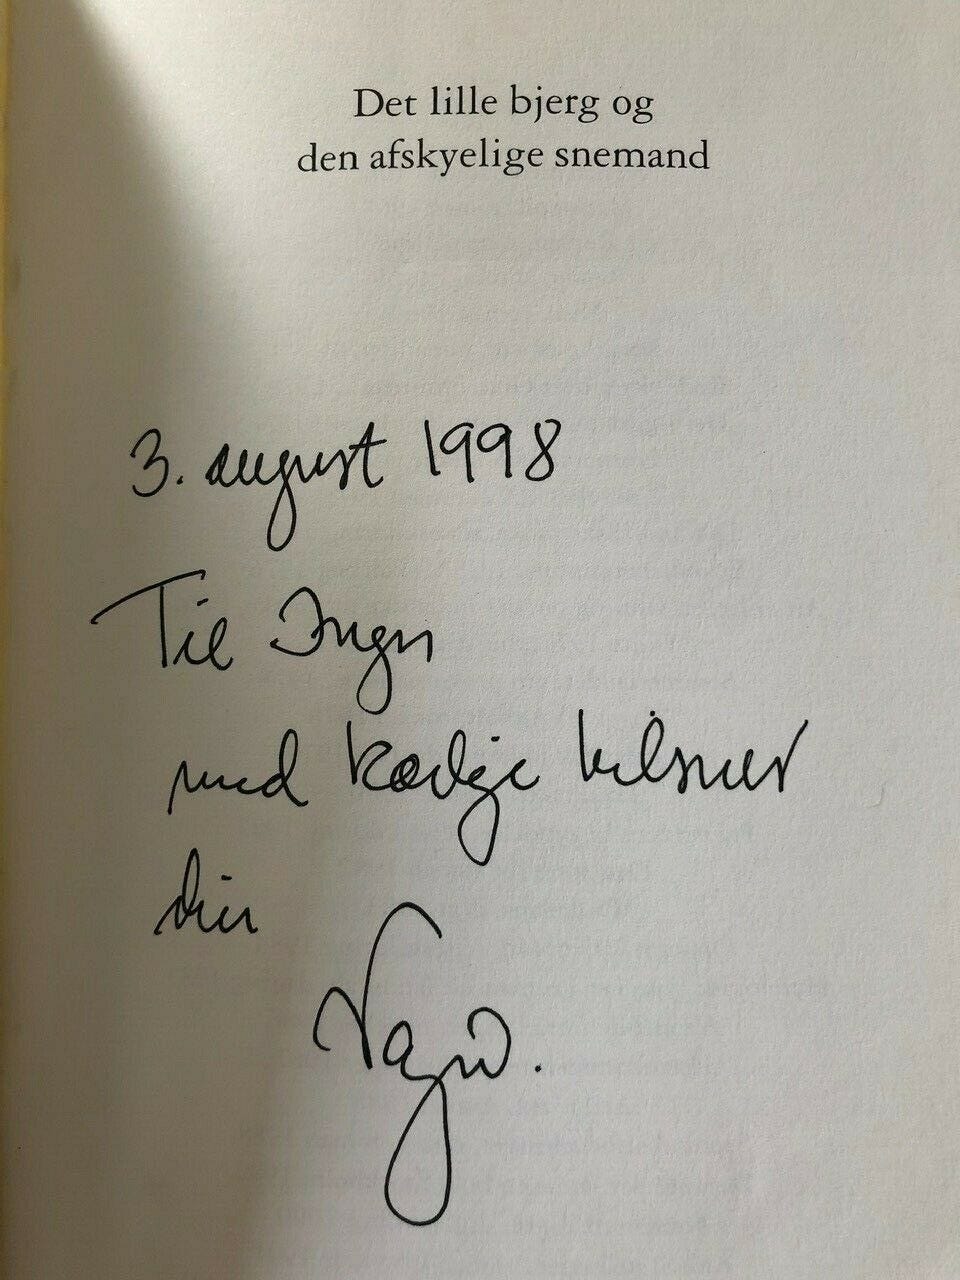 Det lille bjerg og
den afskyelige snemand
3. august 1998
Til Inger
med kærlige hilsner
din
Vagn.